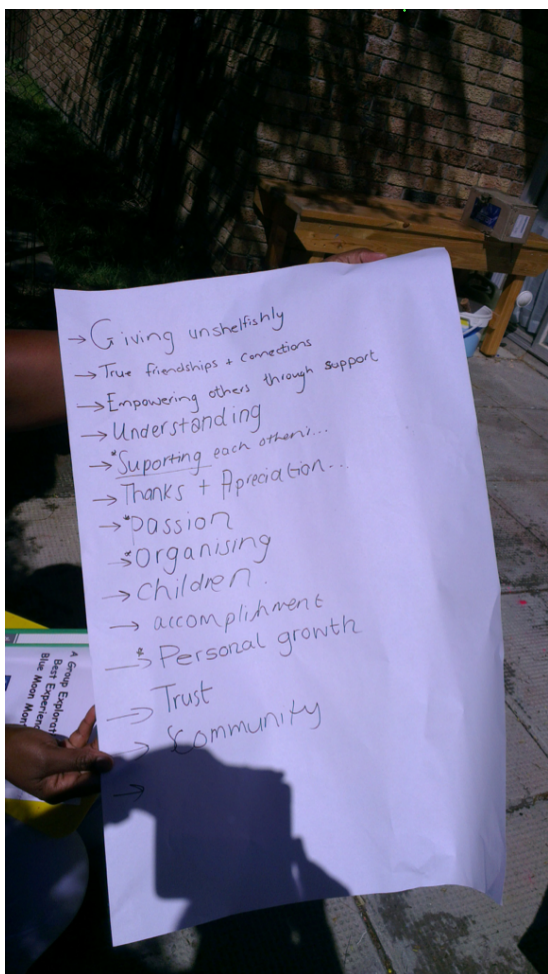 → Giving unshelfishly
→ True friendships + connections
→ Empowering others through support
→ Understanding
→ *Suporting each other...
→ Thanks + Apreciation...
→ *passion
→ *organising
→ children.
→ accomplishment
→ *Personal growth
→ Trust
→ Community
→
A Group Explorat
Best Experien
Blue Moon Mon